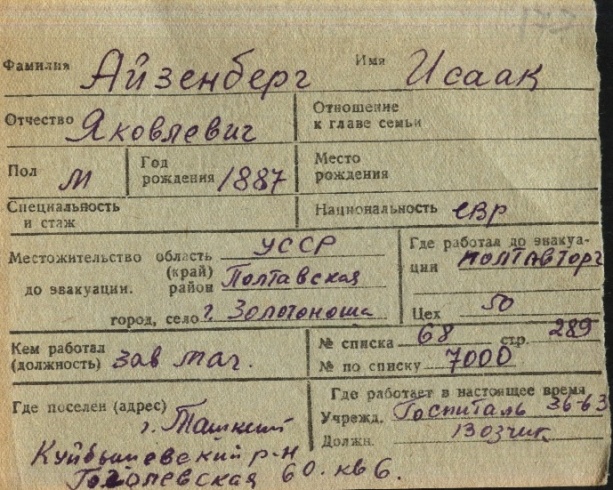 Фамилия Айзенберг Имя Исаак
Отчество Яковлевич
Отношение
к главе семьи
Пол М
Год
рождения 1887
Место
рождения
Специальность
и стаж
Национальность евр
Местожительство область УССР
(край)
до эвакуации. район Полтавская
город, село г. Золотоноша
Где работал до эвакуа-
ции Полтавторг
Цех 50
Кем работал
(должность) зав маг.
№ списка 68 стр. 289
№ по списку 7000
Где поселен (адрес)
г. Ташкент
Куйбышевский р-н
Гоголевская 60. кв 6.
Где работает в настоящее время
Учрежд. Госпиталь 36-63
Должн. Возчик